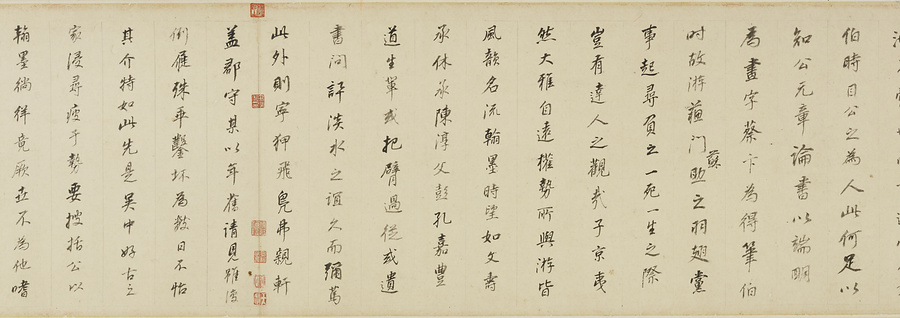 伯時目公之為人此何足以
知公元章論書以端明
為畫字蔡卞為得筆伯
時故游蘇門助之羽翅黨
蘇
事起尋負之一死一生之際
豈有達人之觀哉子京夷
然大雅自遠權勢所與游皆
風韻名流翰墨時望如文壽
承休承陳淳父彭孔嘉豐
道生輩或把臂過從或遺
書問評淡水之誼久而彌篤
此外則寧狎飛鳧弗親軒
蓋郡守某以年舊請見雖復
倒屣殊乖鑿坏為數日不怡
其介特如此先是吳中好古之
家浸尋疲于勢要披括公以
翰墨徜徉竟厥世不為他嗜